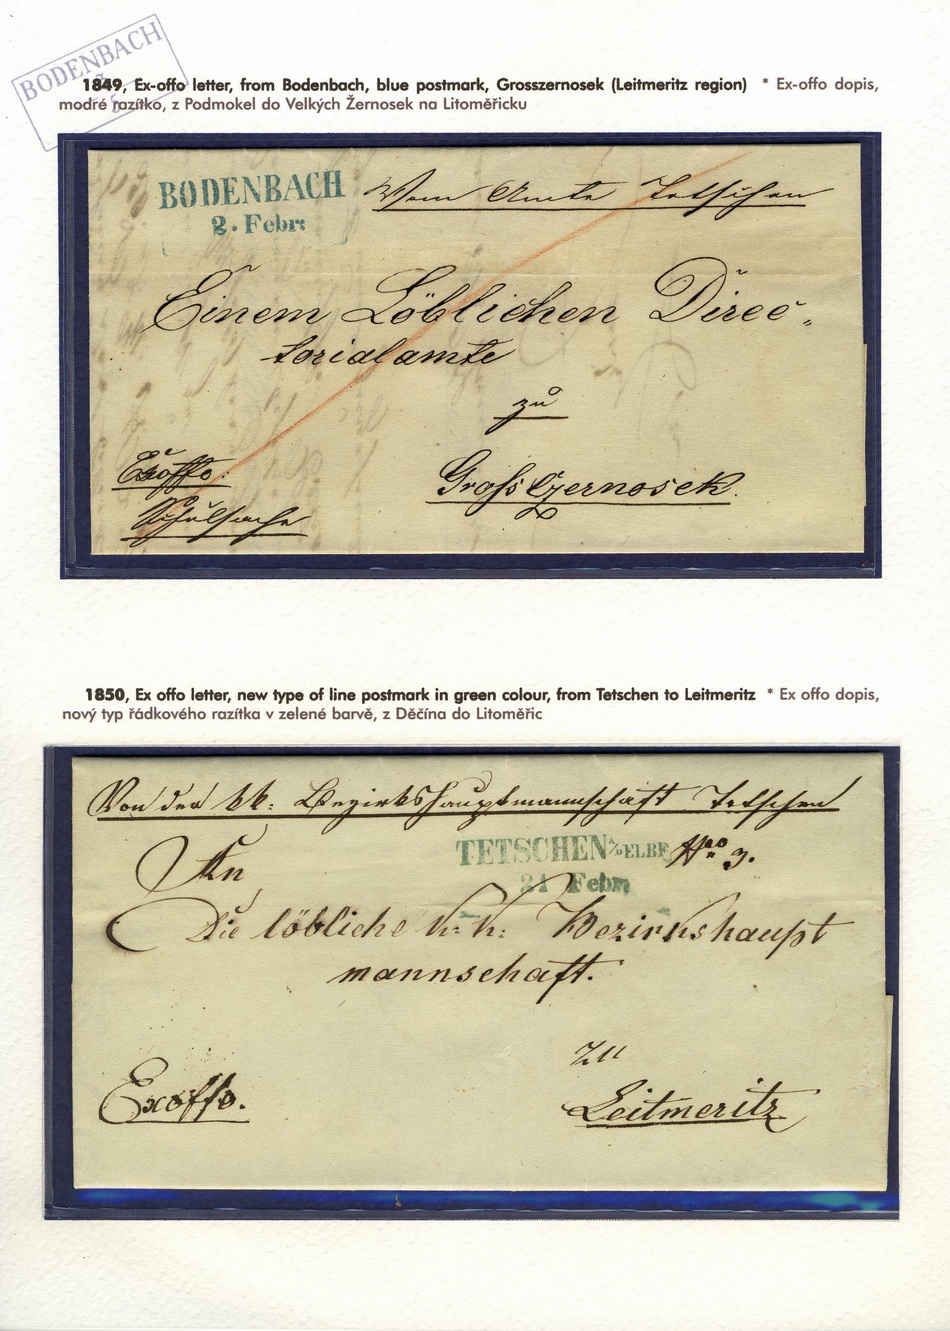 BODENBACH
1849, Ex-offo letter, from Bodenbach, blue postmark, Grosszernosek (Leitmeritz region) * Ex-offo dopis,
modré razítko, z Podmokel do Velkých Žernosek na Litoměřicku
BODENBACH
2. Febr:
Vom Amte Tetschen
Einem Löblichen Direc-
torialamte
zu
Exoffo.
Gross Czernosek.
Schulsache
1850, Ex offo letter, new type of line postmark in green colour, from Tetschen to Leitmeritz * Ex offo dopis,
nový typ řádkového razítka v zelené barvě, z Děčína do Litoměřic
Von der kk: Bezirkshauptmannschaft Tetschen
TETSCHEN a/z ELBE
Nro 3.
An
21 Febr:
Die löbliche k: k: Bezirkshaupt
mannschaft.
zu
Exoffo.
Leitmeritz